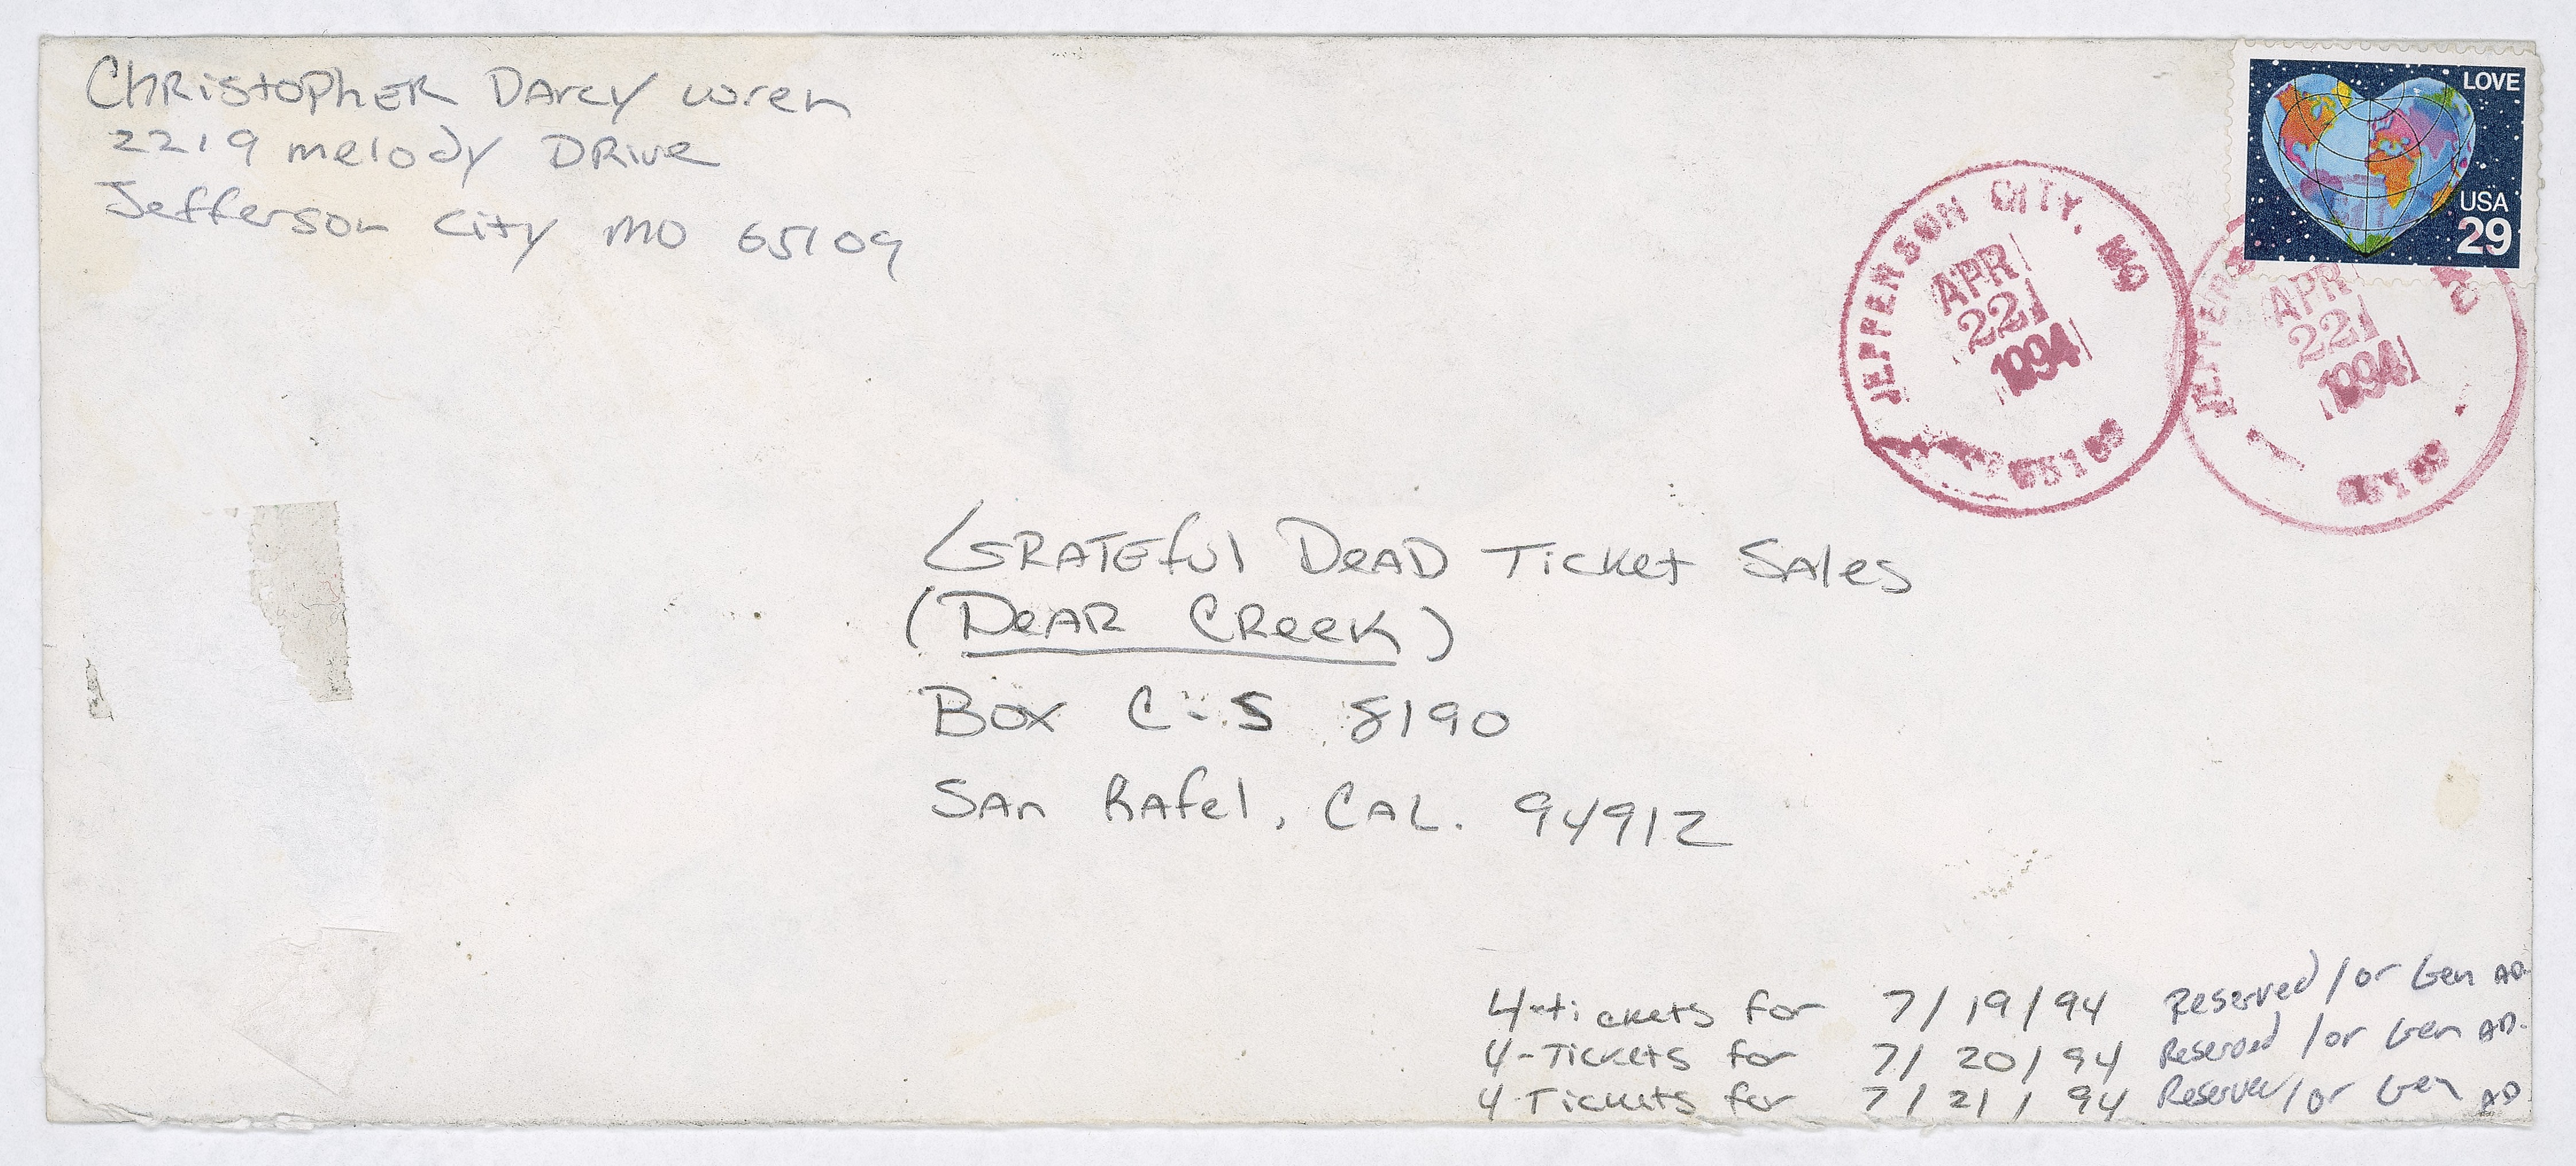 ChRistophER DArcy wren
2219 melody DRive
Jefferson City MO 65109
LOVE
USA
29
JEFFERSON CITY, MO
APR
22
1994
65109
APR
22
1994
65109
GRATEful DeAD Ticket SAles
(DeAR CReek)
Box C-S 8190
SAn RAfel, CAL. 94912
4-tickets for 7/19/94 Reserved/or Gen AD.
4-Tickets for 7/20/94 Reserved/or Gen AD.
4 Tickets for 7/21/94 Reserved/or Gen AD